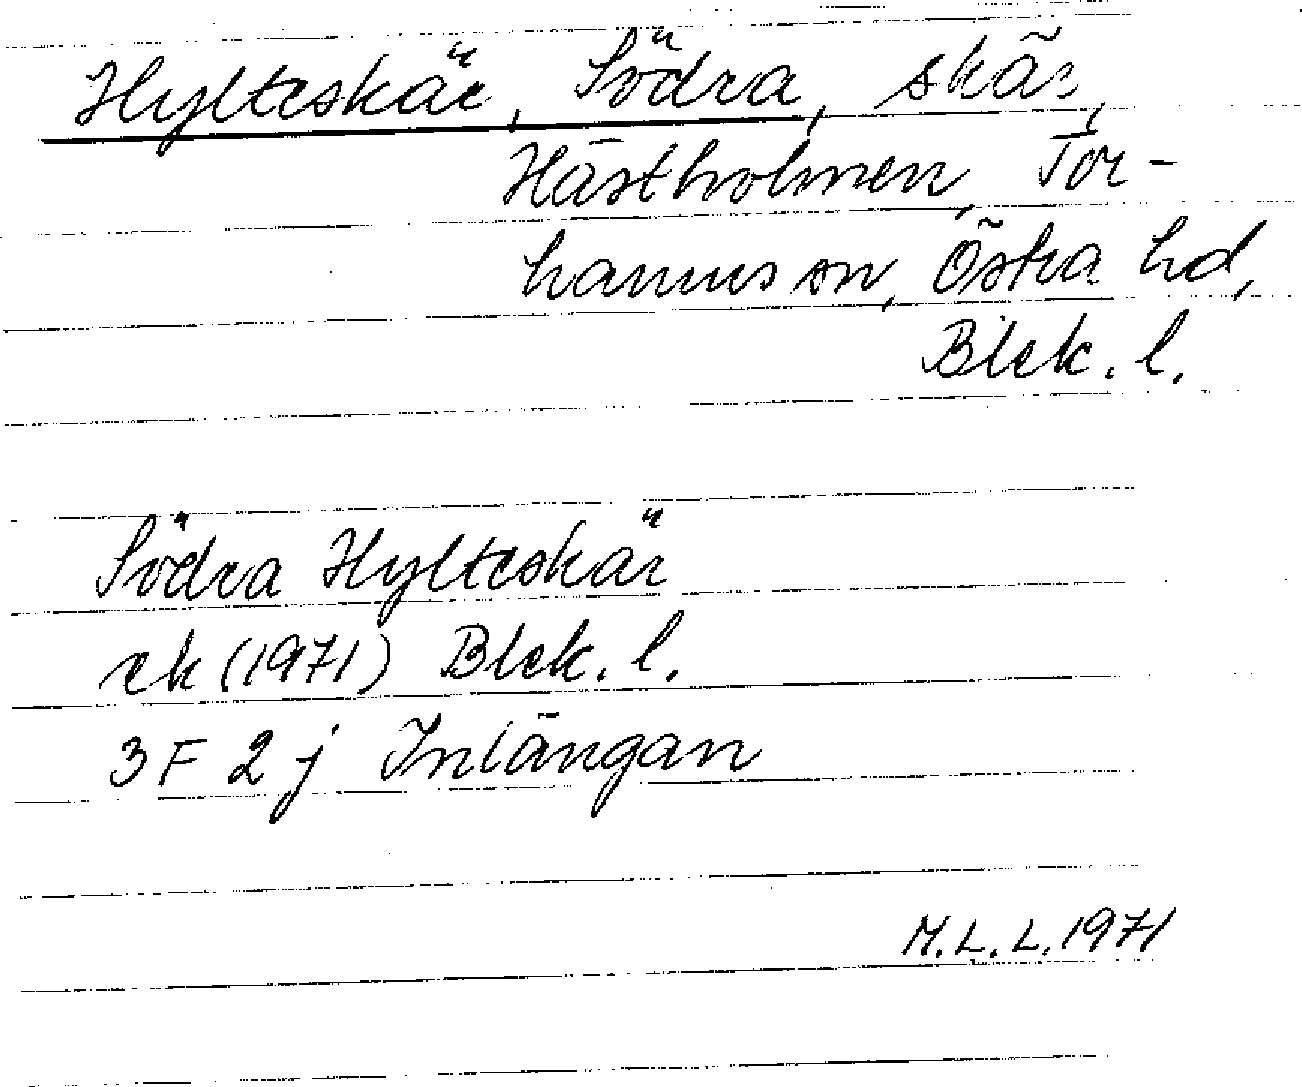 Hylteskär, Södra, skär,
Hästholmen, Tor-
hamns sn, Östra hd,
Blek. l.
Södra Hylteskär
ek (1971) Blek. l.
3 F 2 j Inlängan
M.L.L. 1971